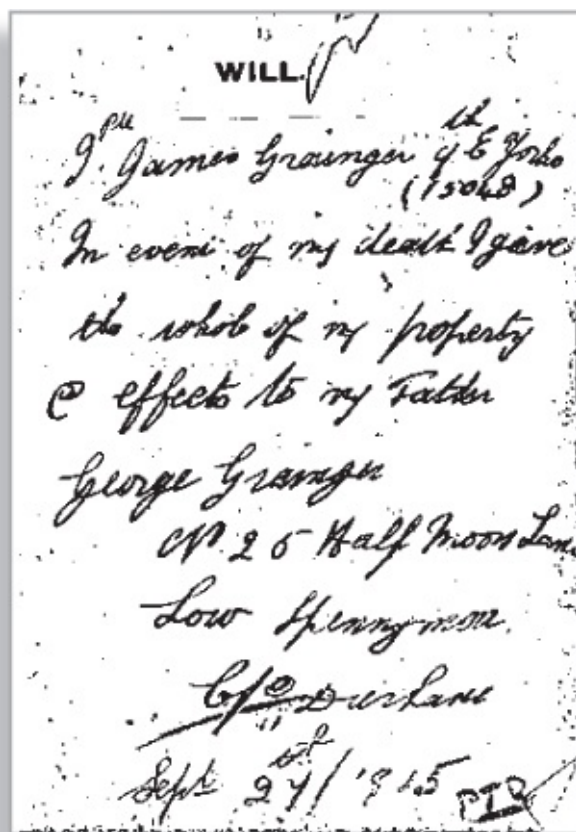 WILL.
I Pte James Grainger 4th E Yorks
(15048)
In event of my death I give
the whole of my property
& effects to my Father
George Grainger
No 25 Half Moon Lane
Low Spennymoor
C/o Durham
Sept 27/1915
PTO